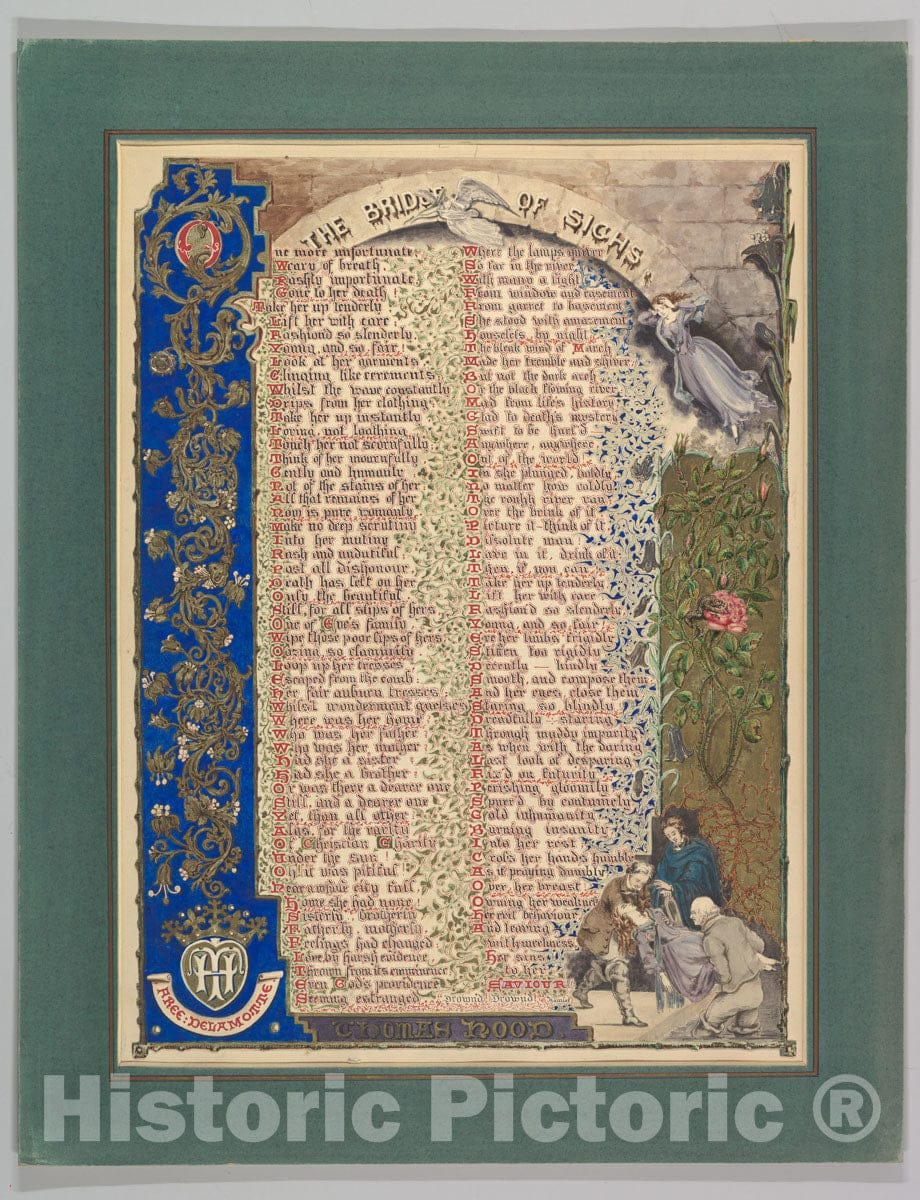 THE BRIDGE OF SIGHS.
One more unfortunate,
Weary of breath,
Rashly importunate,
Gone to her death!
Take her up tenderly
Lift her with care;
Fashion'd so slenderly,
Young, and so fair!
Look at her garments
Clinging like cerements
Whilst the wave constantly
Drips from her clothing;
Take her up instantly
Loving, not loathing
Touch her not scornfully
Think of her mournfully
Gently and humanly
Not of the stains of her
All that remains of her
Now is pure womanly
Make no deep scrutiny
Into her mutiny
Rash and undutiful
Past all dishonour
Death has left on her
Only the beautiful
Still, for all slips of hers
One of Eve's family
Wipe those poor lips of hers
Oozing so clammily
Loop up her tresses
Escaped from the comb
Her fair auburn tresses;
Whilst wonderment guesses
Where was her home
Who was her father
Who was her mother
Had she a sister
Had she a brother
Or was there a dearer one
Still, and a dearer one
Yet, than all other
Alas, for the rarity
Of Christian Charity
Under the sun
Oh! it was pitiful
Near a whole city full
Home she had none!
Sisterly, brotherly
Fatherly, motherly
Feelings had changed
Love by harsh evidence
Thrown from its eminence
Even God's providence
Seeming estranged
Where the lamps quiver
So far in the river
With many a light
From window and casement
From garret to basement
She stood with amazement
Houseless, by night
The bleak wind of March
Made her tremble and shiver
But not the dark arch
Or the black flowing river
Mad from life's history
Glad to death's mystery
Swift to be hurl'd—
Anywhere, anywhere
Out of the world
In she plunged, boldly
No matter how coldly
The rough river ran
Over the brink of it
Picture it—think of it
Dissolute man
Lave in it, drink of it
Then, if you can
Take her up tenderly
Lift her with care
Fashion'd so slenderly
Young, and so fair
Ere her limbs frigidly
Stiffen too rigidly
Decently—kindly
Smooth, and compose them
And her eyes, close them
Staring so blindly
Dreadfully staring
Through muddy impurity
As when with the daring
Last look of despairing
Fix'd on futurity
Perishing gloomily
Spurr'd by contumely
Cold inhumanity
Burning insanity
Into her rest
Cross her hands humbly
As if praying dumbly
Over her breast
Owning her weakness
Her evil behaviour
And leaving
with meekness
Her sins
to her
SAVIOUR
Drown'd! Drown'd! Hamlet
THOMAS HOOD
TH
AREE: DELAMOTTE
Historic Pictoric ®